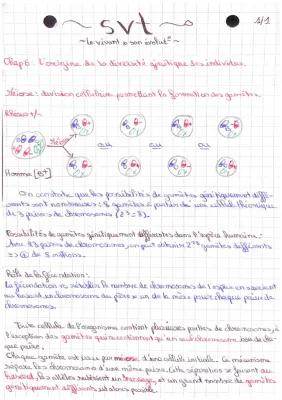 svt
1/1
~ Le vivant & son évolut° ~
Chap 6 : L'origine de la diversité génétique des individus.
Méiose : division cellulaire permettant la formation des gamètes.
Rhésus +/-
ou ou ou
Homme
On constate que les possibilités de gamètes génétiquement diffé-
rents sont nombreuses : 8 gamètes à partir de une cellule théorique
de 3 paires de chromosomes (2^3 = 8).
Possibilités de gamètes génétiquement différents dans l'espèce humaine.
Avec 23 paires de chromosomes, on peut obtenir 2^23 gamètes différents
=> de 8 millions.
Rôle de la fécondation :
La fécondation rétablit le nombre de chromosomes de l'espèce en réunissant
au hasard, un chromosome du père & un de la mère pour chaque paire de
chromosomes.
Toute cellule de l'organisme contient plusieurs paires de chromosomes, à
l'exception des gamètes qui ne contiennent qu'un seul chromosome de cha-
que paire.
Chaque gamète est issu par méiose d'une cellule initiale. Ce mécanisme
sépare les chromosomes d'une même paire. Cette séparation se faisant au
hasard, les allèles subissent un brassage, et un grand nombre de gamètes
génétiquement différents est alors possible.